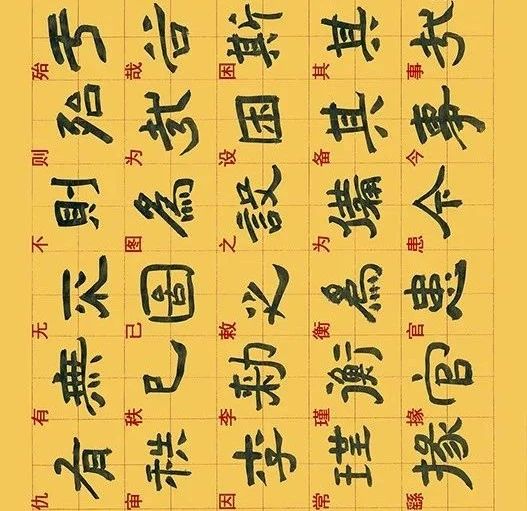 于谷斯其
殆哉困其事
殆哉困其事
则为设备今
則為設備今
不图之为患
不圖之為患
无已敕衡官
無已敕衡官
有秩李瑾掾
有秩李瑾掾
仇审因常繇